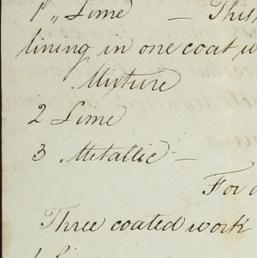 1 „ Lime — This
lining in one coat w
Mixture
2 Lime
3 Metallic —
For
Three coated work